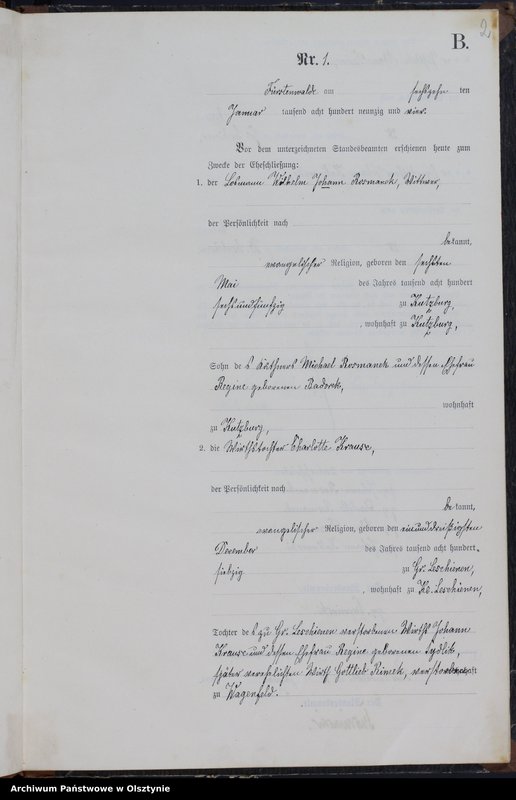 2
B.
Nr. 1.
Fürstenwalde am sechszehn ten
Januar tausend acht hundert neunzig und vier.
Vor dem unterzeichneten Standesbeamten erschienen heute zum
Zwecke der Eheschließung:
1. der Losmann Wilhelm Johann Rosmanek, Wittwer,
der Persönlichkeit nach
bekannt,
evangelischer Religion, geboren den sechsten
Mai des Jahres tausend acht hundert
sechs und fünfzig zu Kutzburg,
, wohnhaft zu Kutzburg,
Sohn des Käthners Michael Rosmanek und dessen Ehefrau
Regine geborenen Badorek,
wohnhaft
zu Kutzburg,
2. die Wirthstochter Charlotte Krause,
der Persönlichkeit nach
bekannt,
evangelischer Religion, geboren den einunddreißigsten
December des Jahres tausend acht hundert
siebzig zu Gr. Leschienen,
, wohnhaft zu Kl. Leschienen,
Tochter des zu Gr. Leschienen verstorbenen Wirths Johann
Krause und dessen Ehefrau Regine geborenen
später verehelichten Wirth Gottlieb wohnhaft
zu Wagenfeld.
Archiwum Państwowe w Olsztynie